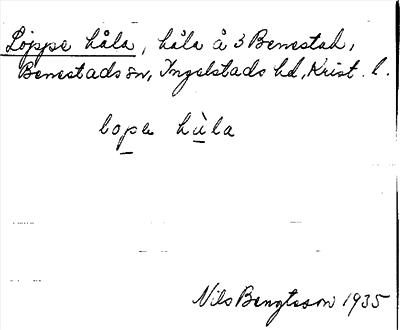 Löppe håla, håla å 3 Benestad,
Benestads sn, Ingelstads hd, Krist. l.
lope hùla
Nils Bengtsson 1935